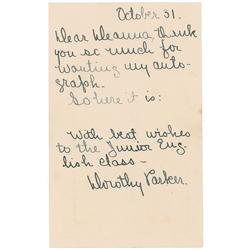 October 31.
Dear Deanna, Thank
you so much for
wanting my auto-
graph.
So here it is:
With best wishes
to the Junior Eng-
lish class –
Dorothy Parker.